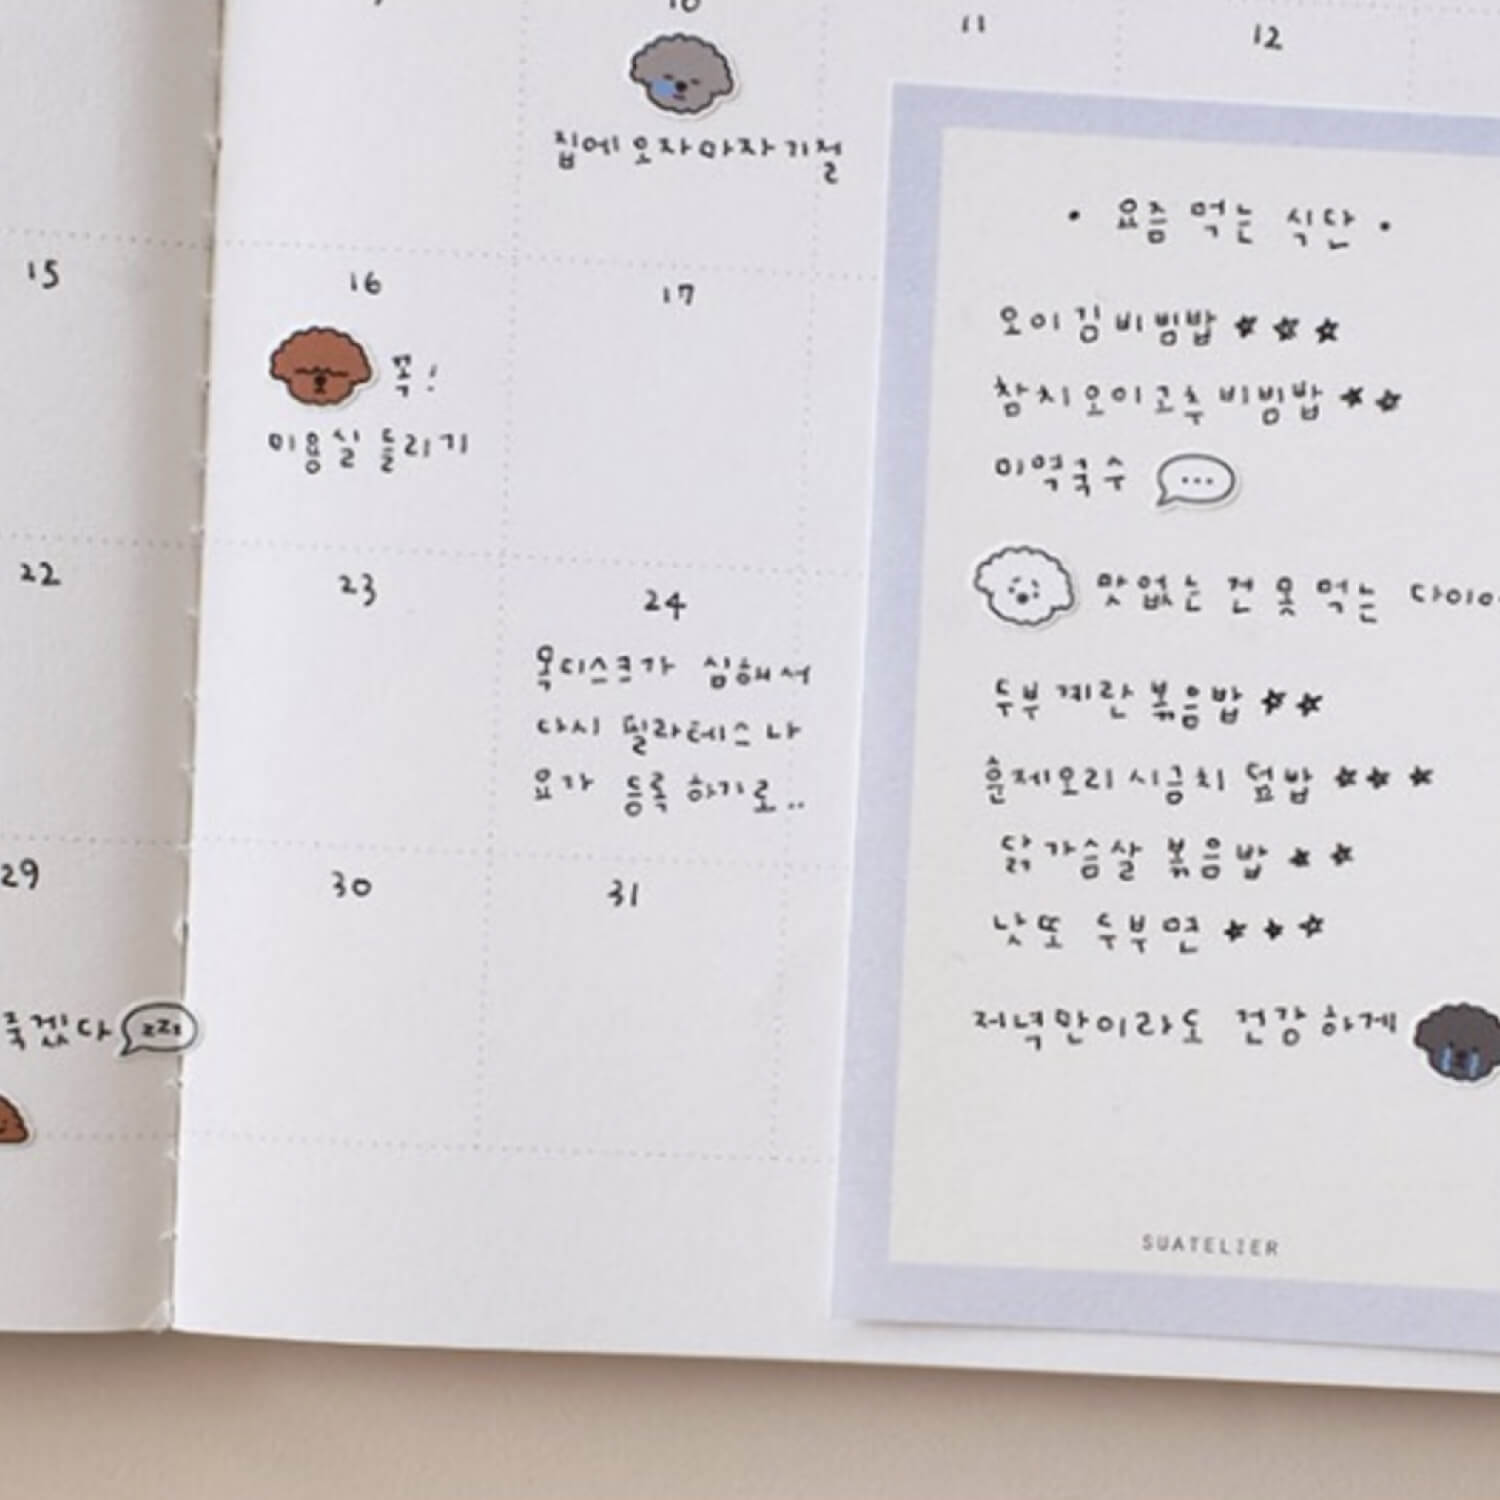 10
11
12
집에 오자마자 기절
15
16
17
꼭!
미용실 들리기
22
23
24
목디스크가 심해서
다시 필라테스나
요가 등록하기로..
29
30
31
죽겠다
zzz
• 요즘 먹는 식단 •
오이김비빔밥 ★★★
참치오이고추비빔밥 ★★
미역국수
...
맛없는 건 못 먹는
두부계란볶음밥 ★★
훈제오리시금치 덮밥 ★★★
닭가슴살 볶음밥 ★★
낫또 두부면 ★★★
저녁만이라도 건강하게
SUATELIER